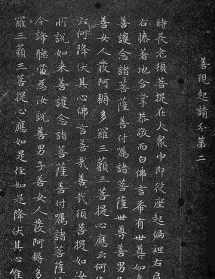 善現起請分第二
時長老須菩提在大衆中即從座起偏袒右
右膝著地合掌恭敬而白佛言希有世尊如
善護念諸菩薩善付囑諸菩薩世尊善男
善女人發阿耨多羅三藐三菩提心應云何
云何降伏其心佛言善哉善哉須菩提如
所說如來善護念諸菩薩善付囑諸菩薩
今諦聽當為汝說善男子善女人發阿耨
羅三藐三菩提心應如是住如是降伏其心